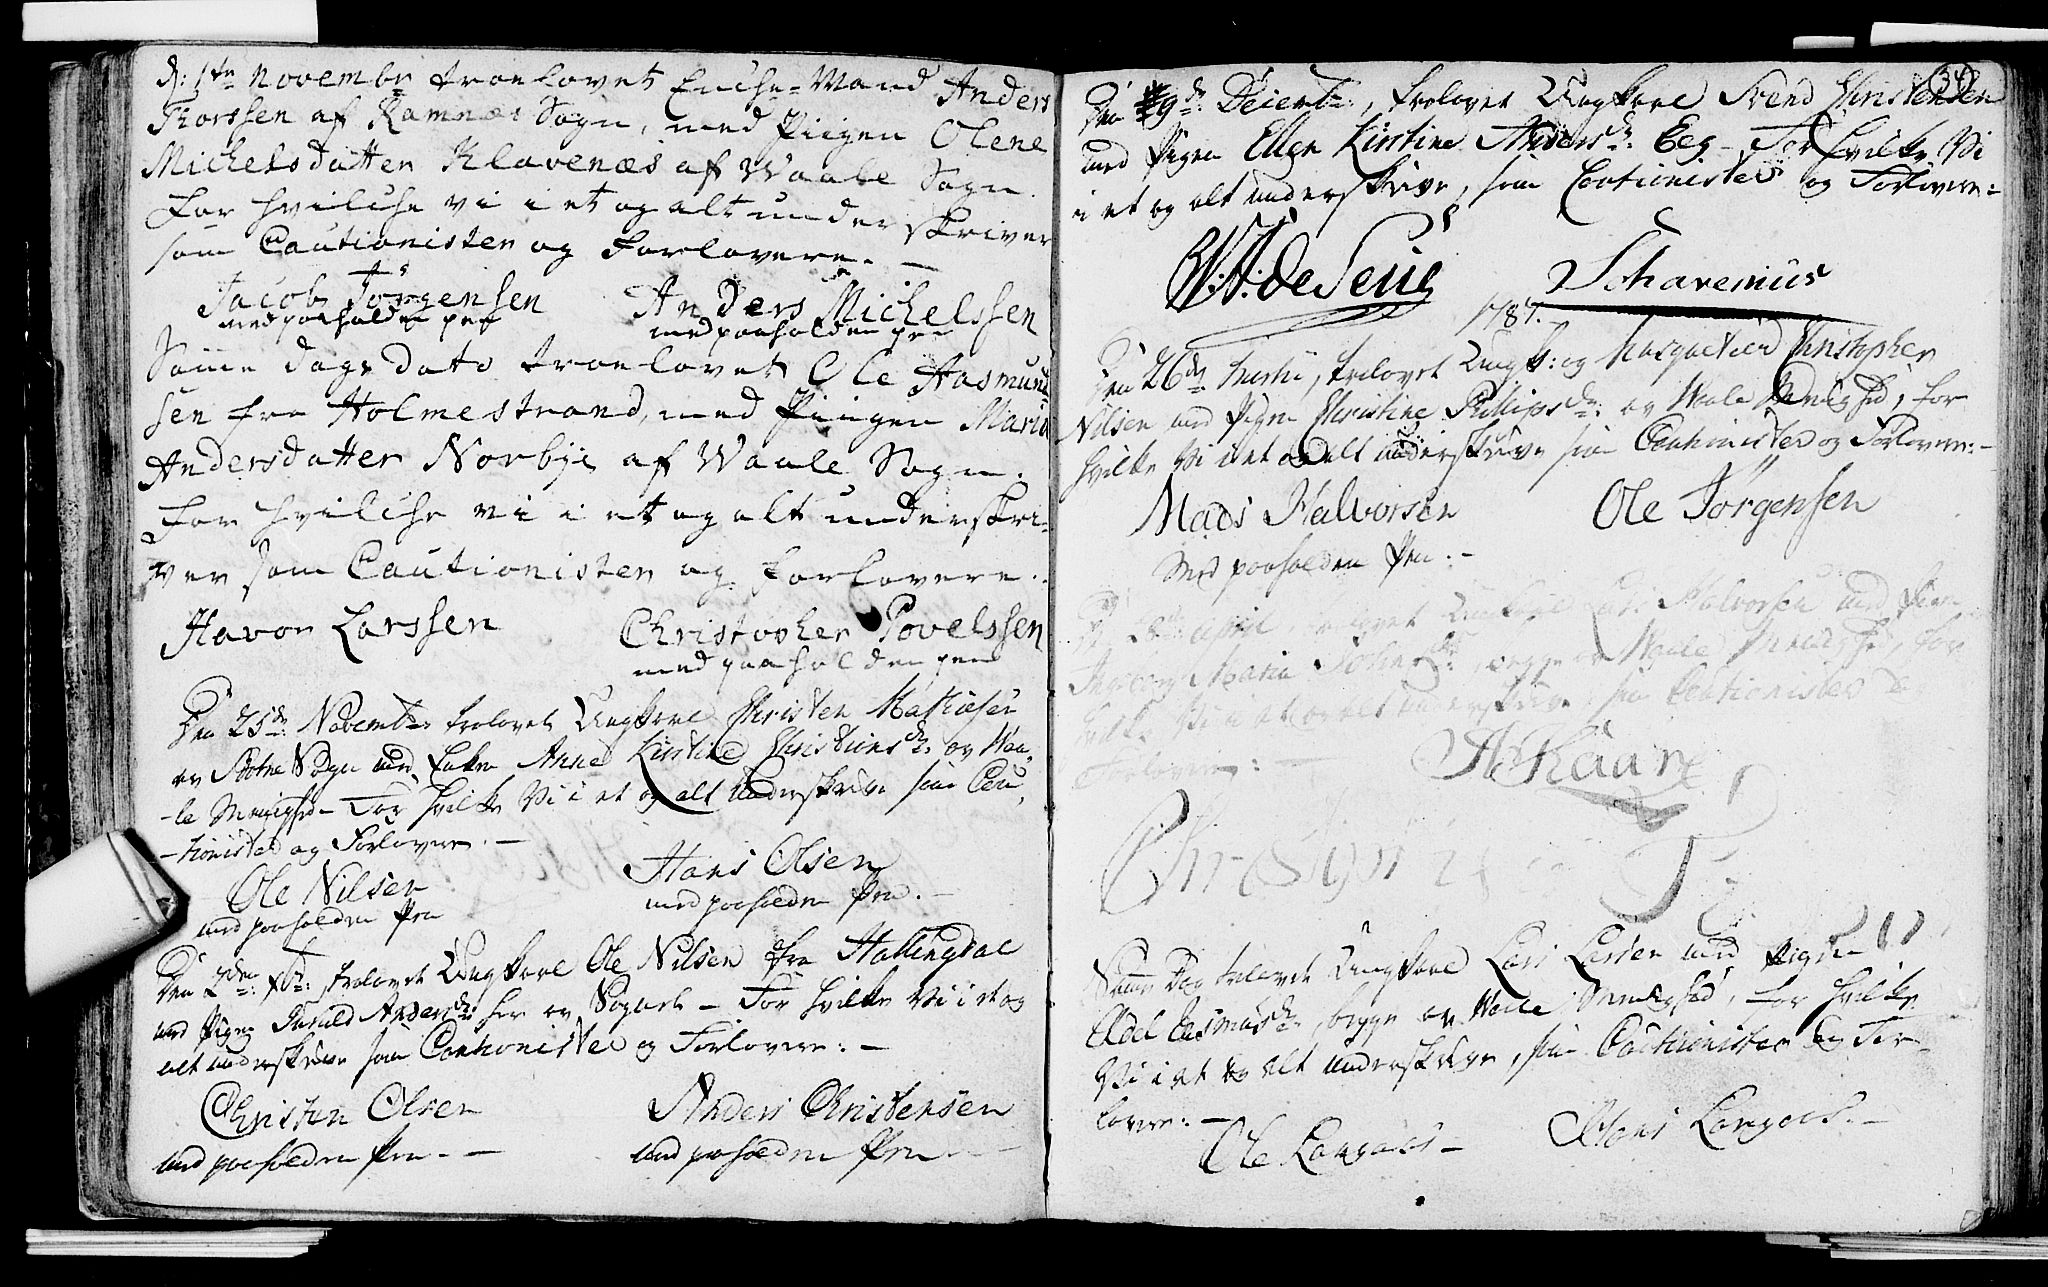 d: 1te Novembr troelovet Enche-Mand Anders
Thorssen af Ramnæs Sogn, med Piigen Olene
Michelsdatter Klavenæs af Waale Sogn.
For hvilche vi i et og alt under skriver
som Cautionister og Forlovere. —
Jacob Jörgensen Anders Michelssen
med paaholden pen med paaholden pen
Samme dags dato troelovet Ole Aasmund
sen fra Holmestrand, med Piigen Maria
Andersdatter Norbye af Waale Sogn.
For hvilche vi i et og alt underskri-
ver som Cautionister og Forlovere.
Havor Larssen Christopher Povelssen
med paaholden pen
Den 25de Novembr: trolovet Ungkarl Christen Mathiesen
av Botne Sogn med Enken Anne Kirstine Christensdr: av Waa,
-le Menighed - For hvilke Vi i et og alt underskrive som Cau,
-tionister og Forlovere. —
Ole Nilsen Hans Olsen
med paaholden Pen med paaholden Pen. —
Den 2den Xbr:, trolovet Ungkarl Ole Nilsen fra Hallingdal
med Pigen Andersdr: her av Sognet - For hvilke Vi i et og
alt underskrive som Cautionister og Forlovere: —
Christen Olsen Anders Christensen
med paaholden Pen. — med paaholden Pen
34
Den 9de Decembr:, trolovet Ungkarl Svend Christensen
med Pigen Ellen Kirstine Andersdr: Eeg - For hvilke Vi
i et og alt underskrive, som Cautionister og Forlovere:
W: A: de Seue Schavenius
1787.
Den 26de Martii, trolovet Ungk: og Musqueteer Christopher
Nilsen med Pigen Christine Phillipsdr: av Waale Menighed, for
hvilke Vi i et og alt underskrive som Cautionister og Forlovere: -
Mads Halvorsen Ole Jörgensen
Med paaholden Pen: -
April trolovet Ungkarl Halvorsen med Pigen
Ingeborg Maria begge av Waale Menighed, for
hvilke Vi i et og alt underskrive, som Cautionister og
Forlovere: —
Samme Dag trolovet Ungkarl Lars Larsen med Pigen
Eldel Rasmusdr:, begge av Waale Menighed, for hvilke
Vi i et og alt underskrive, som Cautionister og For-
lovere: —
Ole Langaas - Hans Langaas. -